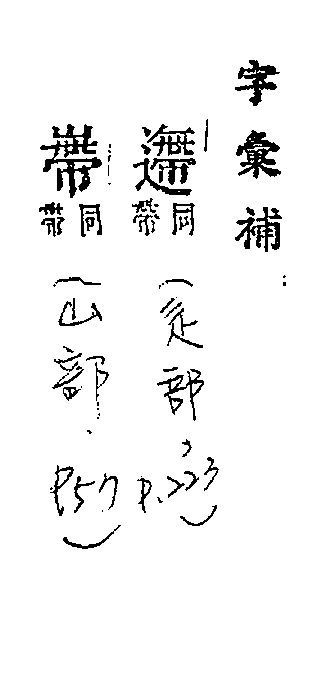 字彙補
遰同帶
(辵部,P.223)
同帶
(山部.P57)